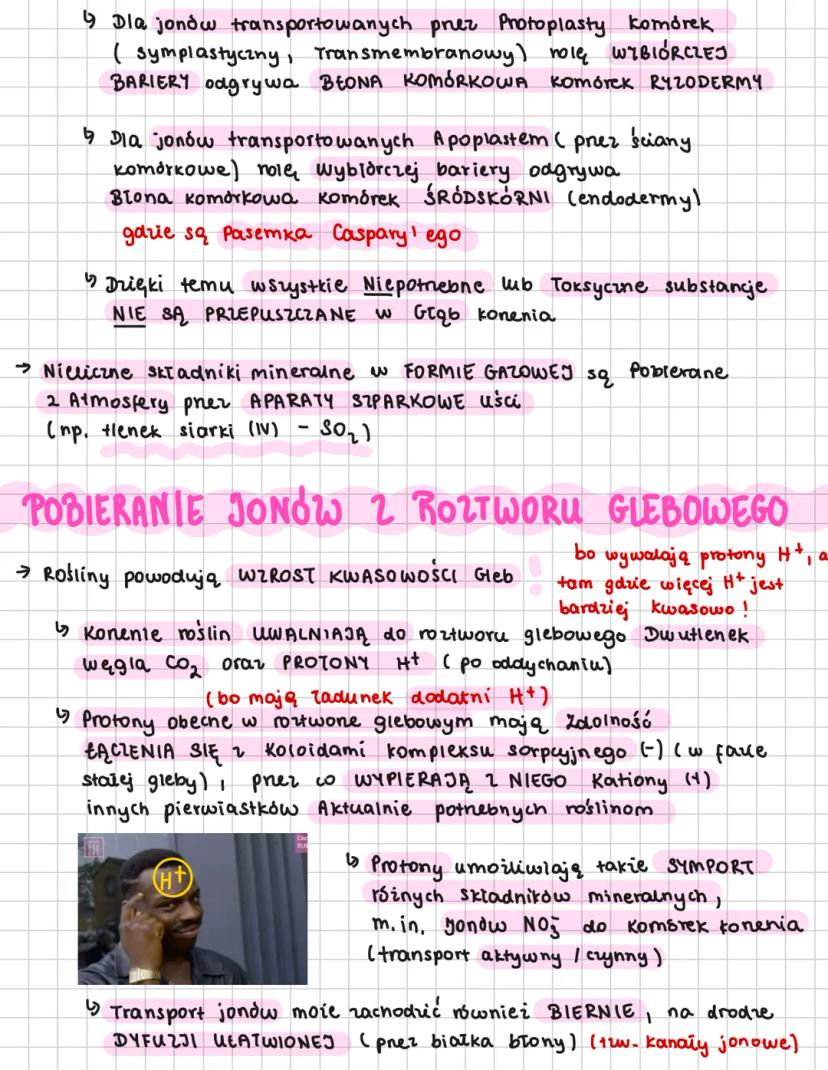 ↳ Dla jonów transportowanych przez Protoplasty komórek
(symplastyczny, Transmembranowy) rolę WYBIÓRCZEJ
BARIERY odgrywa BŁONA KOMÓRKOWA komórek RYZODERMY
↳ Dla jonów transportowanych Apoplastem (przez ściany
komórkowe) rolę Wybiórczej bariery odgrywa
Błona komórkowa komórek ŚRÓDSKÓRNI (endodermy)
gdzie są Pasemka Caspary'ego
↳ Dzięki temu wszystkie Niepotrzebne lub Toksyczne substancje
NIE SĄ PRZEPUSZCZANE w Głąb korzenia
→ Nieliczne składniki mineralne w FORMIE GAZOWEJ są Pobierane
z Atmosfery przez APARATY SZPARKOWE Liści
(np. tlenek siarki (IV) - SO₂)
POBIERANIE JONÓW Z ROZTWORU GLEBOWEGO
bo wywalają protony H⁺, a
tam gdzie więcej H⁺ jest
bardziej kwasowo!
→ Rośliny powodują WZROST KWASOWOŚCI Gleb !
↳ Korzenie roślin UWALNIAJĄ do roztworu glebowego Dwutlenek
węgla CO₂ oraz PROTONY H⁺ (po oddychaniu)
(bo mają ładunek dodatni H⁺)
↳ Protony obecne w roztworze glebowym mają Zdolność
ŁĄCZENIA SIĘ z Koloidami kompleksu sorpcyjnego (-) (w fazie
stałej gleby), przez co WYPIERAJĄ Z NIEGO Kationy (+)
innych pierwiastków Aktualnie potrzebnych roślinom
H⁺
↳ Protony umożliwiają także SYMPORT
różnych składników mineralnych,
m.in. Jonów NO₃⁻ do komórek korzenia
(transport aktywny / czynny)
↳ Transport jonów może zachodzić również BIERNIE, na drodze
DYFUZJI UŁATWIONEJ (przez białka błony) (tzw. kanały jonowe)